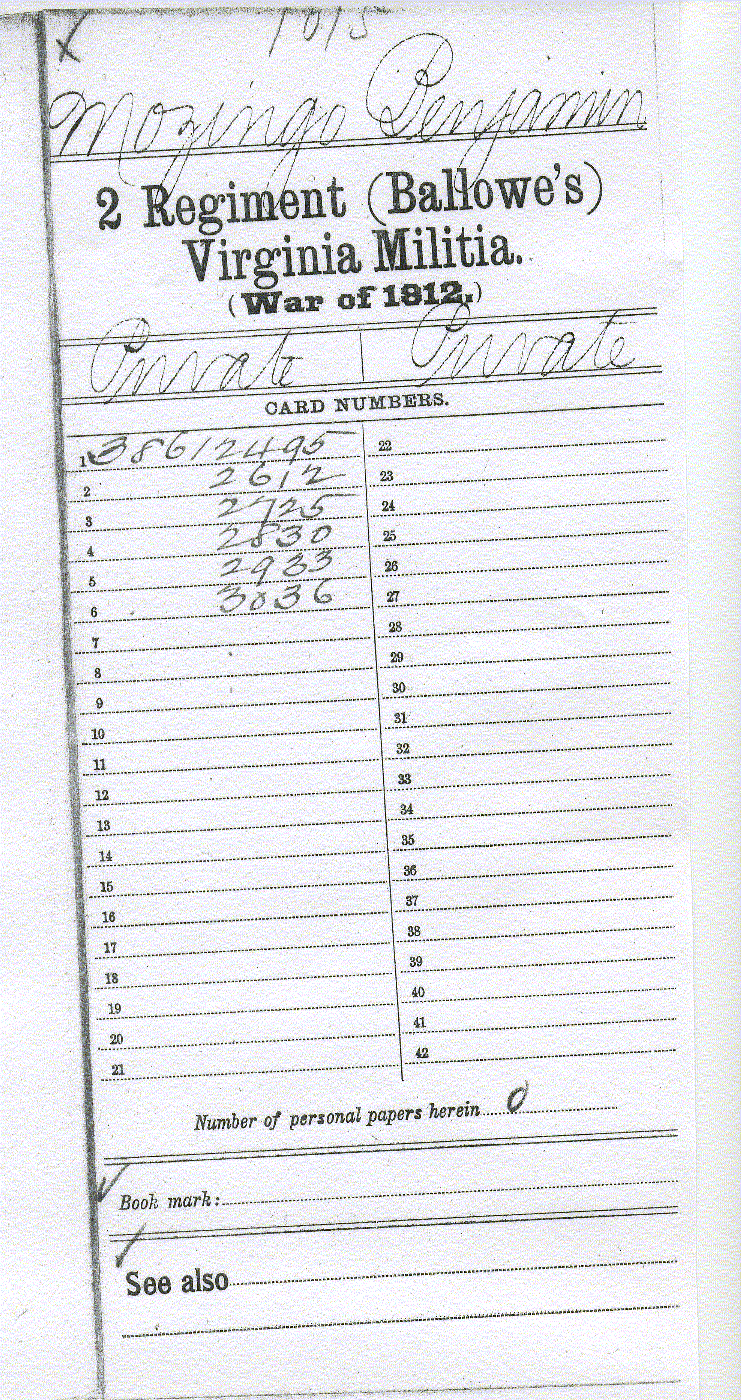 1015
Mozingo Benjamin
2 Regiment (Ballowe's)
Virginia Militia.
(War of 1812.)
Private Private
CARD NUMBERS.
1 38612495 22
2 2612 23
3 2725 24
4 2830 25
5 2933 26
6 3036 27
7 28
8 29
9 30
10 31
11 32
12 33
13 34
14 35
15 36
16 37
17 38
18 39
19 40
20 41
21 42
Number of personal papers herein 0
Book mark:
See also